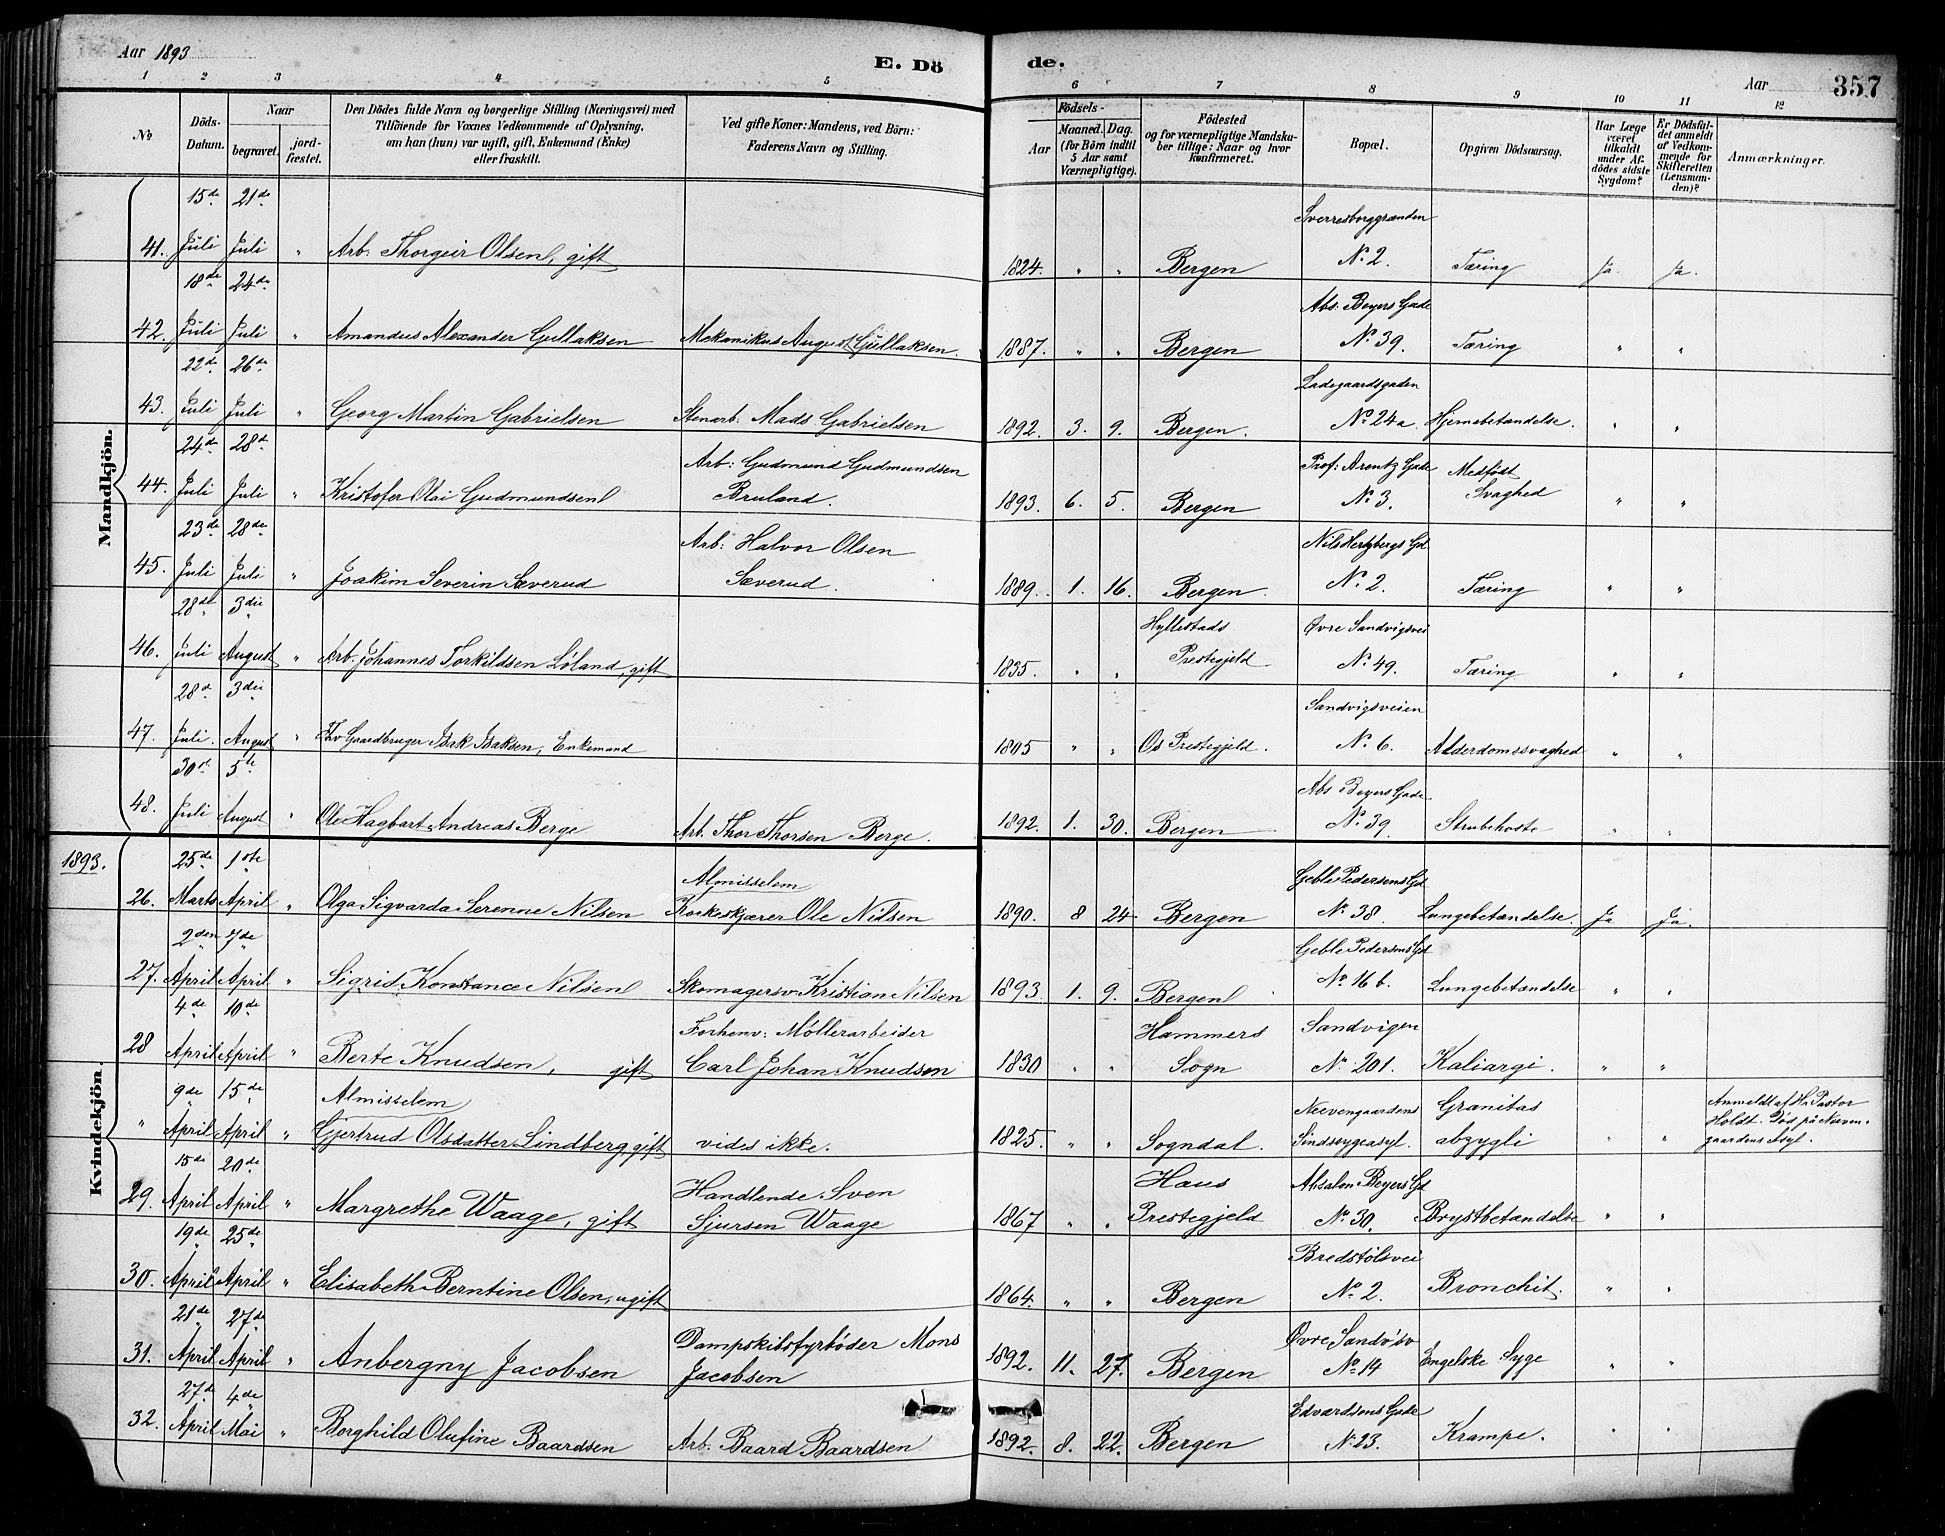 Aar 1893
E. Dö
de.
Aar
357
1 2 3 4 5 6 7 8 9 10 11 12
No
Döds-Datum.
Naar
begravet.
jord-fæstet.
Den Dödes fulde Navn og borgerlige Stilling (Næringsvei) med
Tilföiende for Voxnes Vedkommende af Oplysning,
om han (hun) var ugift, gift, Enkemand (Enke)
eller fraskilt.
Ved gifte Koner: Mandens, ved Börn:
Faderens Navn og Stilling.
Födsels-
Aar
Maaned. Dag.
(for Börn indtil
5 Aar samt
Værnepligtige).
Födested
og for værnepligtige Mandsku-
ber tillige: Naar og hvor
konfirmeret.
Bopæl.
Opgiven Dödsaarsag.
Har Læge
været
tilkaldt
under Af-
dödes sidste
Sygdom?
Er Dödsfal-
det anmeldt
af Vedkom-
mende for
Skifteretten
(Lensman-
den)?
Anmærkninger.
Mandkjön.
15de 21de Sverresborggrænden
41. Juli Juli " Arb. Thorgeir Olsen, gift 1824. " " Bergen No 2. Tæring Ja. Ja.
18de 24de Abs. Beyers Gade
42. Juli Juli " Amandus Alexander Gullaksen Mekanikus August Gullaksen. 1887. " " Bergen No 39. Tæring " "
22de 26de Ladegaardsgaden
43. Juli Juli " Georg Martin Gabrielsen Stenarb. Mads Gabrielsen 1892. 3. 9. Bergen. No 24a. Hjernebetændelse. " "
24de 28d Arb: Gudmund Gudmundsen Prof: Arentz Gade Medfödt
44. Juli Juli " Kristofer Olai Gudmundsen Bruland. 1893. 6. 5. Bergen No 3. Svaghed " "
23de 28de Arb: Halvor Olsen Nils Hertzbergs Gd
45. Juli Juli " Joakim Severin Sæverud Sæverud. 1889. 1. 16. Bergen. No 2. Tæring " "
28de 3die Hyllestads Øvre Sandvigsvei
46. Juli August " Arb. Johannes Torkildsen Løland, gift 1835. " " Prestegjeld No 49. Tæring " "
28d 3die Sandvigsveien
47. Juli. August " Fhv Gaardbruger Isak Isaksen, Enkemand 1805 " " Os Prestegjeld. No 6. Alderdomssvaghed " "
30d 5te Abs Beyers Gade
48. Juli August " Ole Hagbart Andreas Berge Arb. Thor Thorsen Berge. 1892. 1. 30. Bergen No 39. Strubehoste " "
1893.
Kvindekjön.
25de 1ste Almisselem Geble Pedersens Gd
26. Marts April " Olga Sigvarda Serenne Nilsen Korkeskjærer Ole Nilsen 1890. 8 24 Bergen No 38. Lungebetændelse. Ja Ja.
2den 7de Geble Pedersens Gd
27. April April " Sigrid Konstance Nilsen Skomagersv Kristian Nilsen 1893. 1. 9. Bergen No 16 b. Lungebetændelse " "
4de 10de Forhenv: Möllerarbeider Hammers Sandvigen
28 April April " Berte Knudsen, gift Carl Johan Knudsen 1830 " " Sogn No 201. Kaliargi. " "
9de 15de Almisselem Neevengaardens Granitas Anmeldt af Hr Pastor
" April April " Gjertrud Olsdatter Lindberg, gift vides ikke. 1825. " " Sogndal. Sindssygeasyl. abzygli " " Holdt. Død på Neeven-
gaardens Asyl.
15de 20de Handlende Sven Haus Absalon Beyers Gd
29. April April " Margrethe Waage, gift Sjursen Waage 1867 " " Prestegjeld No 30. Brystbetændelse " "
19de 25de Bredstølsvei
30. April April " Elisabeth Berntine Olsen, ugift 1864. " " Bergen No 2. Bronchit. " "
21de 27de Dampskibsfyrbøder Mons Øvre Sandvigsv
31. April April " Anbergny Jacobsen Jacobsen 1892. 11. 27. Bergen No 14 Engelske Syge " "
27d 4de Edvardsens Gade
32. April Mai " Borghild Olufine Baardsen Arb. Baard Baardsen 1892. 8. 22. Bergen No 23. Krampe. " "